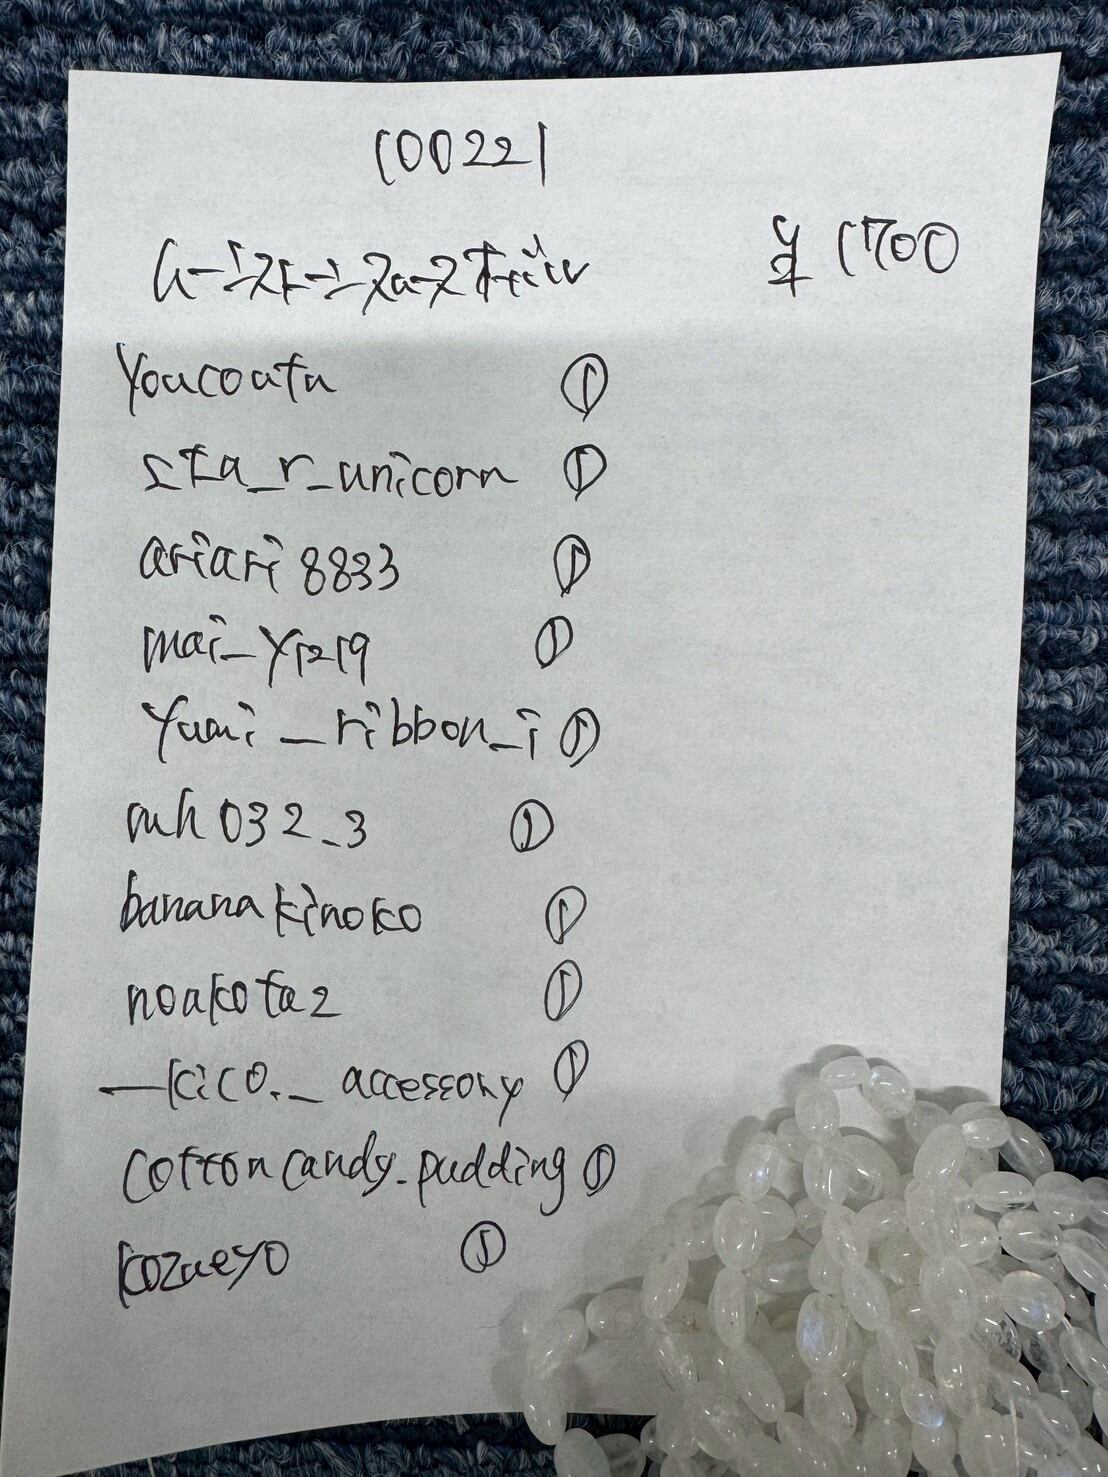 100221
ムーンストーン
¥1700
youcoata ①
sta_r_unicorn ①
ariari8833 ①
mai_y1219 ①
yumi_ribbon_i ①
mh032_3 ①
bananakinoko ①
noakota2 ①
_kico._accessory ①
cottoncandy.pudding ①
kozueyo ①